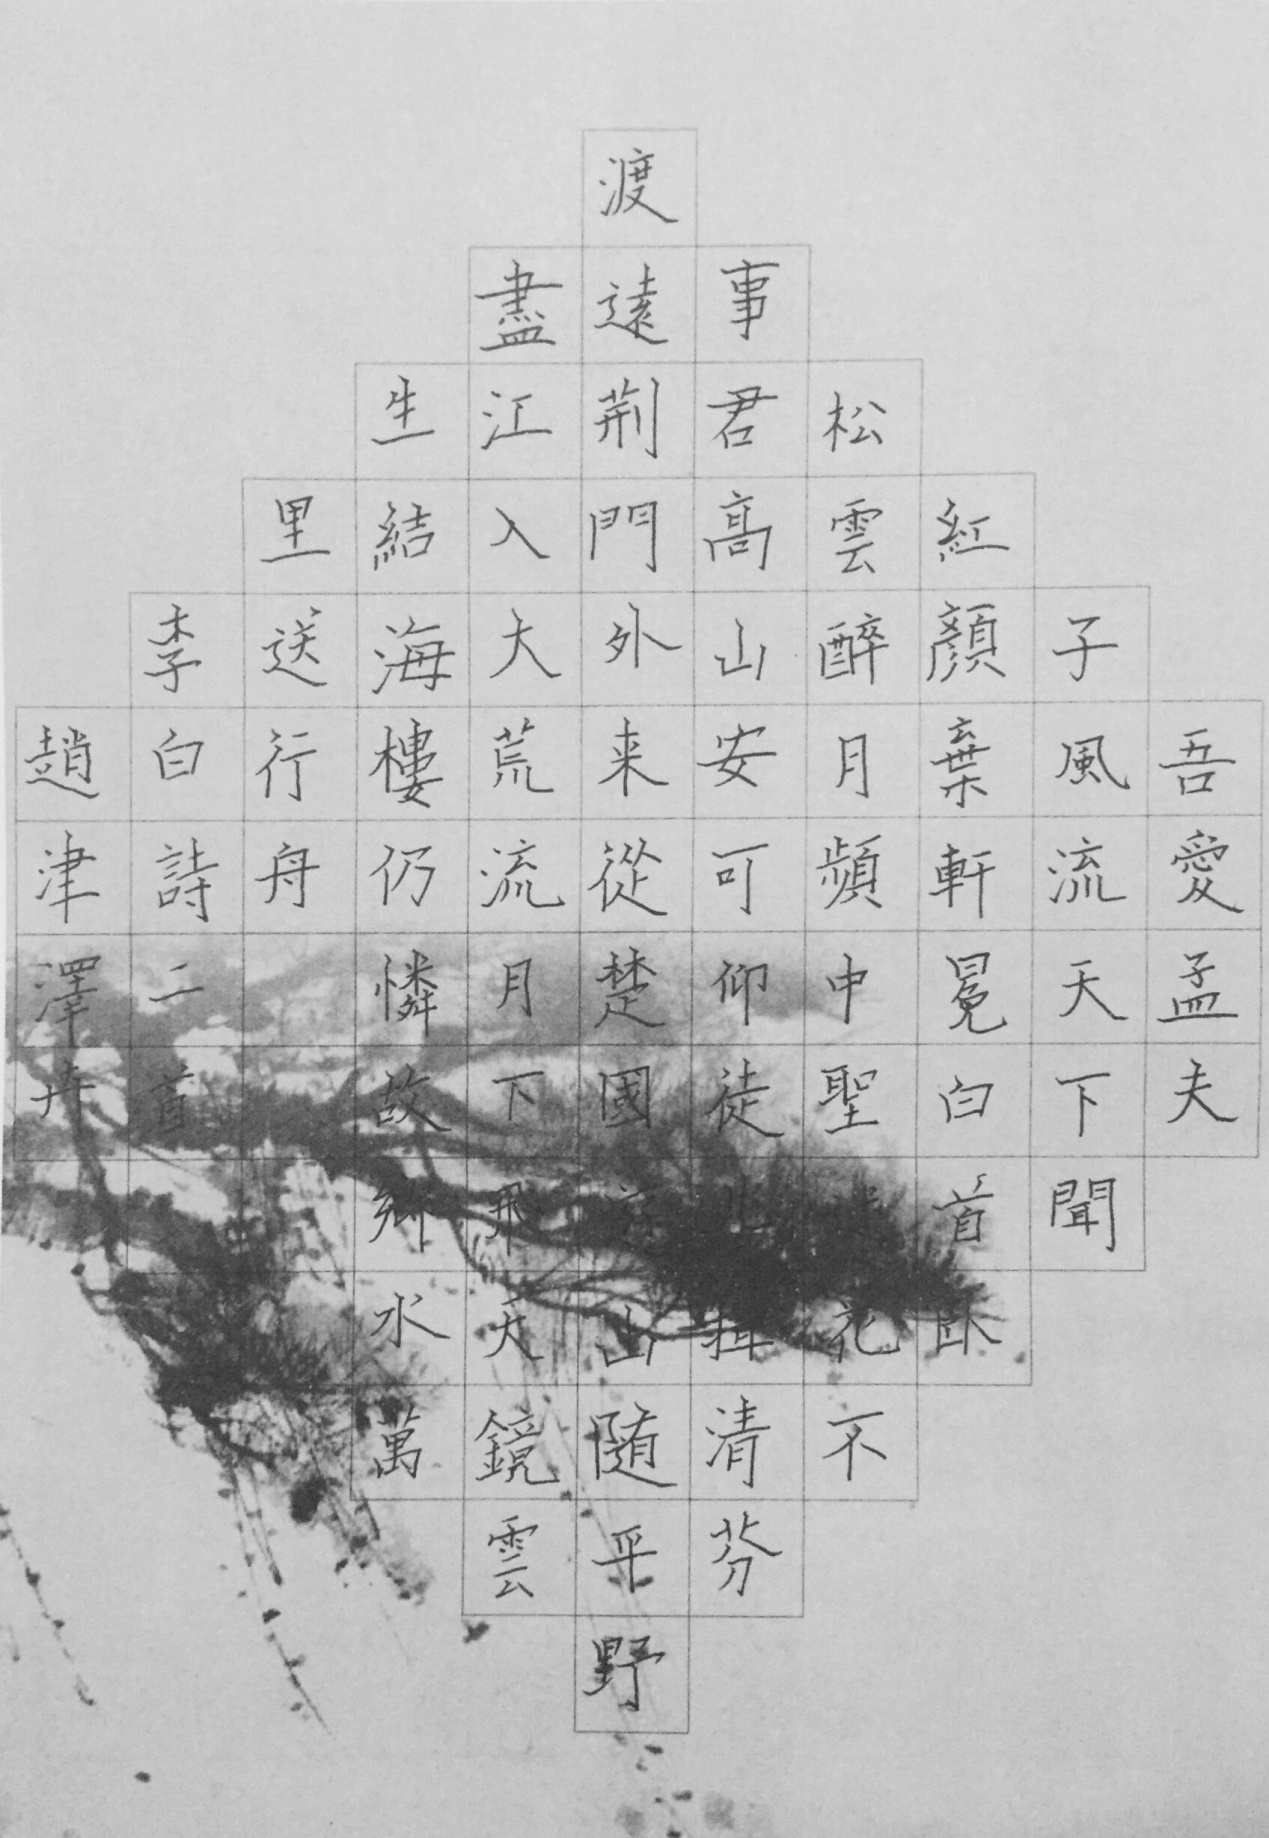 吾愛孟夫
子風流天下聞
紅顏棄軒冕白首臥
松雲醉月頻中聖迷花不
事君高山安可仰徒此揖清芬
渡遠荆門外来從楚國遊山随平野
盡江入大荒流月下飛天鏡雲
生結海樓仍憐故鄉水萬
里送行舟
李白詩二首
趙津澤卉